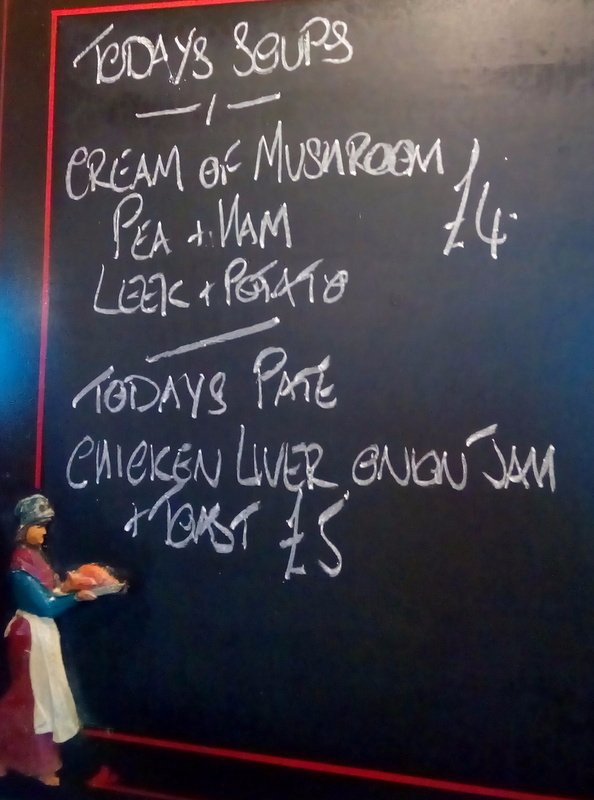 TODAYS SOUPS
CREAM OF MUSHROOM
PEA + HAM £4
LEEK + POTATO
TODAYS PATE
CHICKEN LIVER ONION JAM
+ TOAST £5